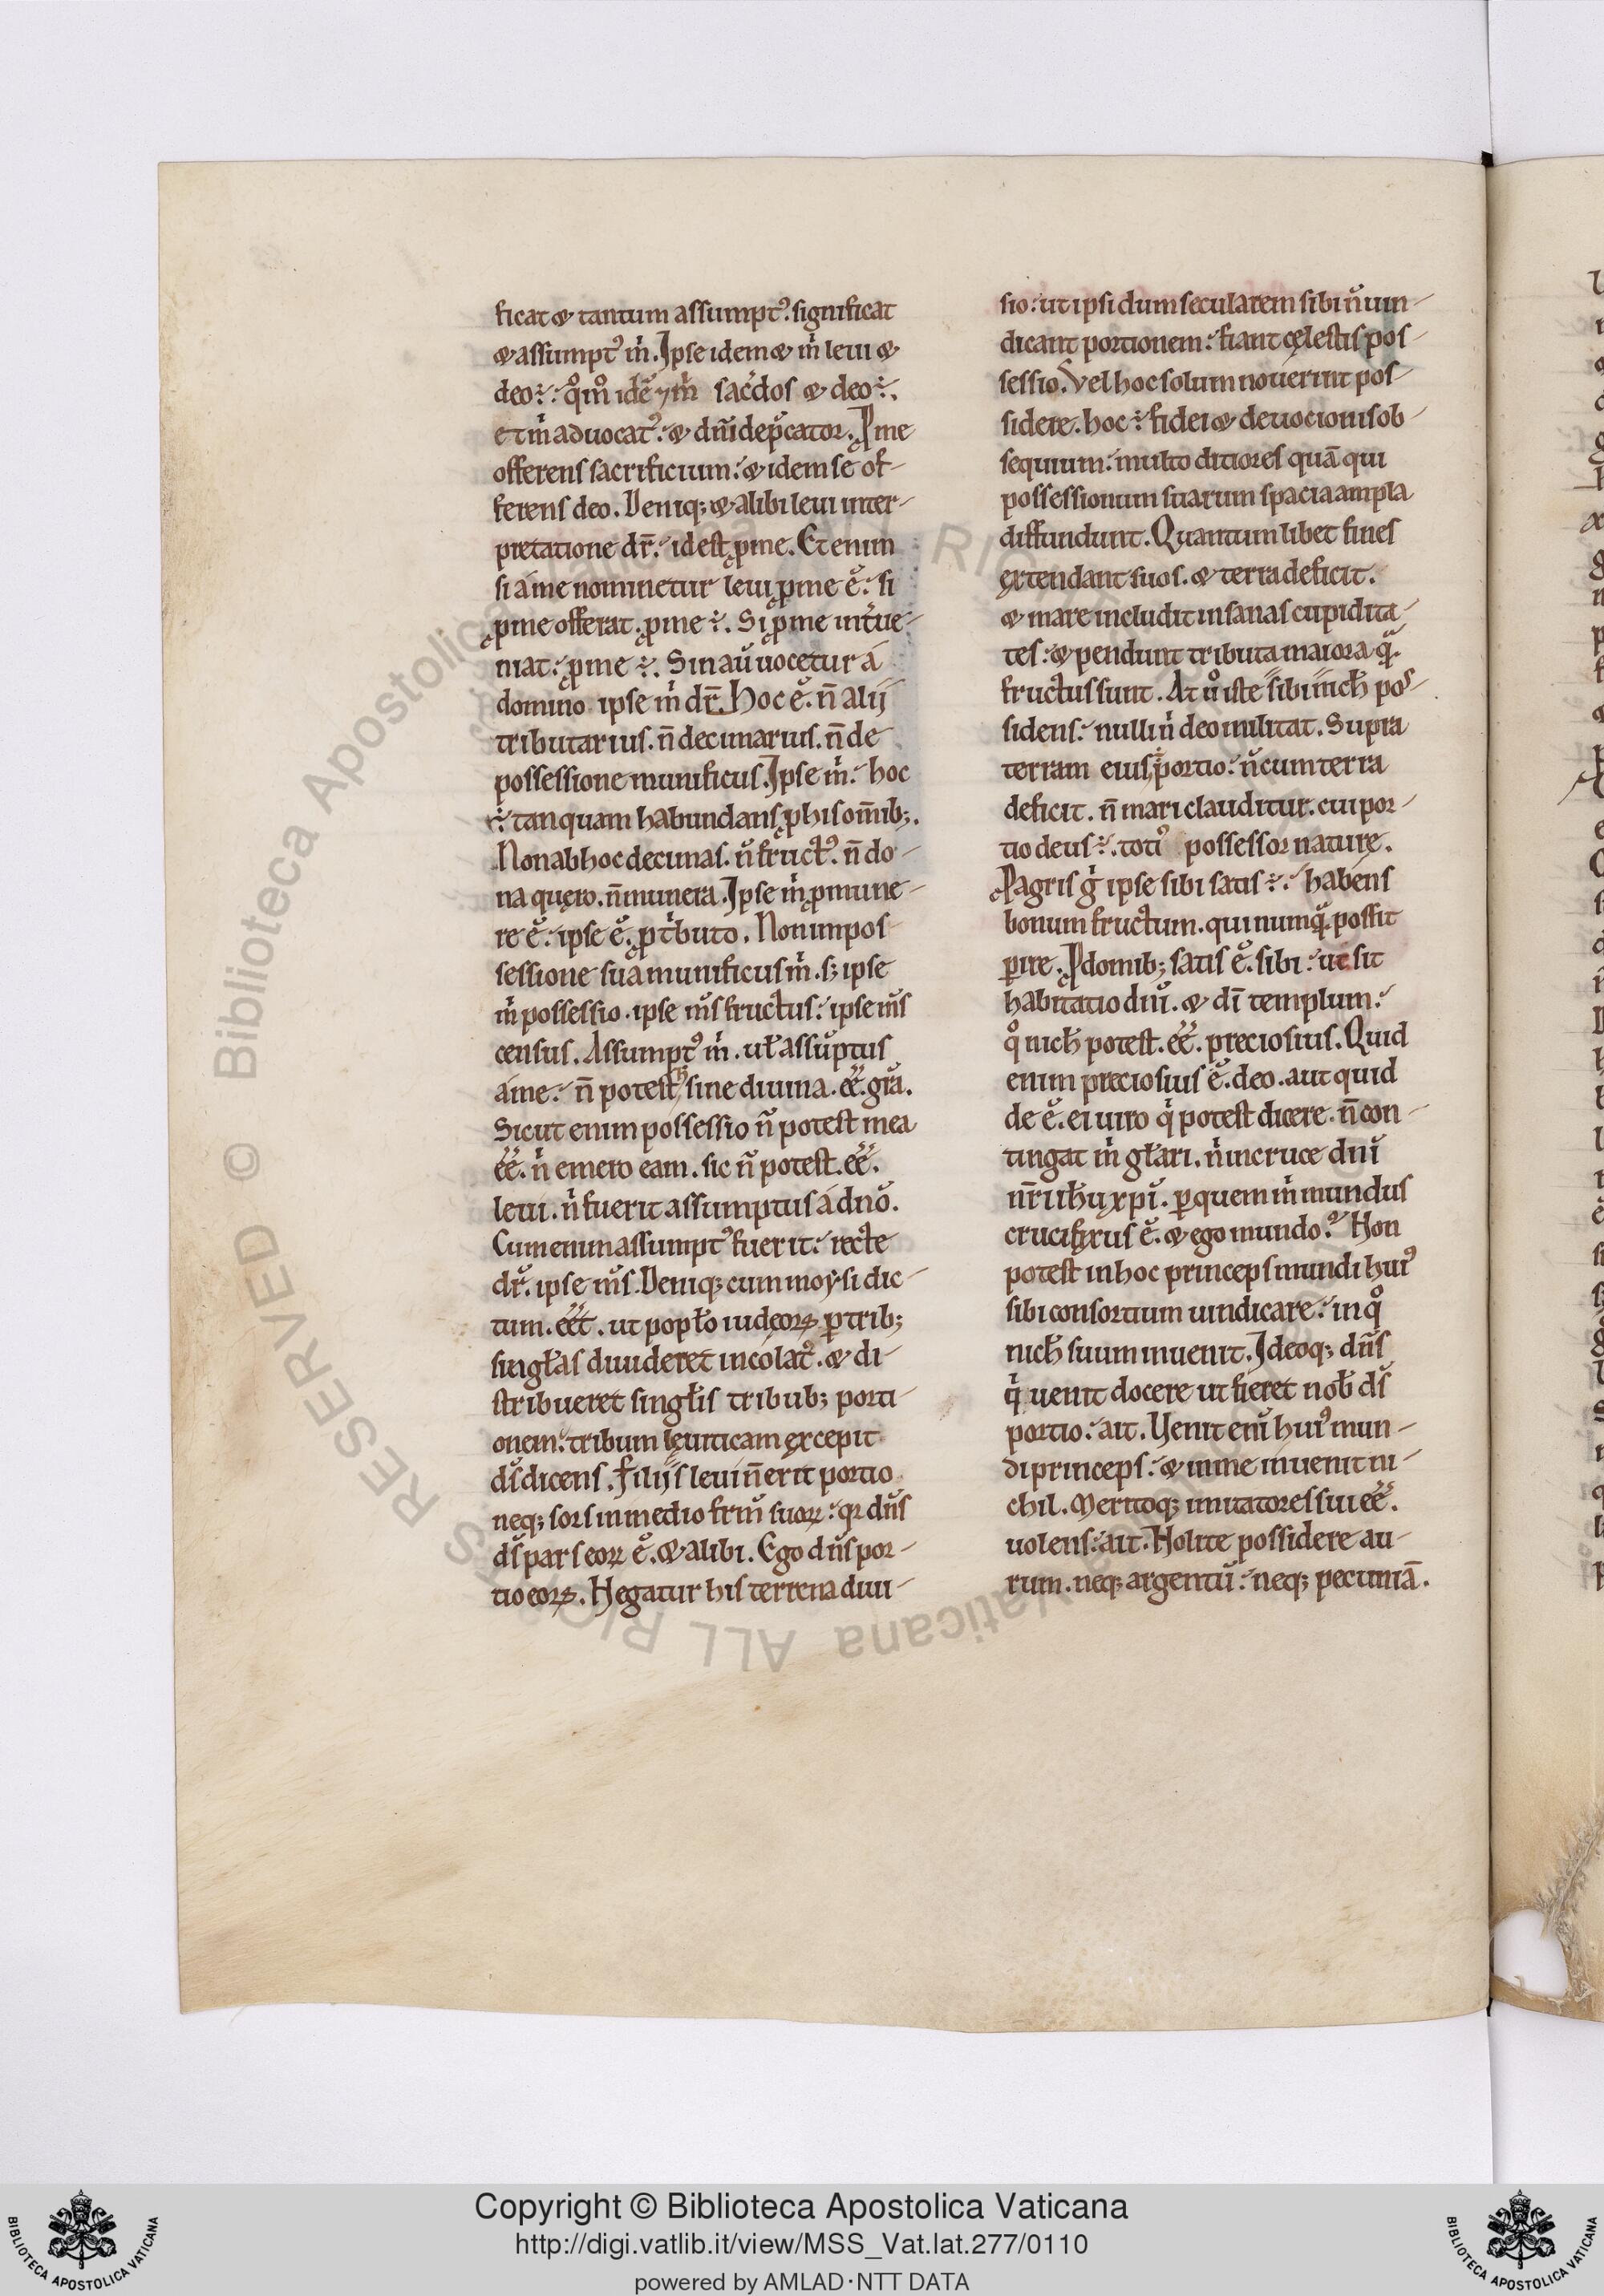 ficat & tantum assumpt᷒. significat
& assumpt᷒ m̉. Ipse idem & m̉ leui &
deo÷. qm̊ idē ⁊ m̉ sac̉dos & deo÷.
et m̉ aduocat᷒. & dn̄i dep̄cator. Ꝓ me
offerens sacrificium. & idem se of-
ferens deo. Deniq; & alibi leui inter-
pretatione dr̄. idest ꝓ me. Et enim
si a me nominetur leui ꝓ me ē. si
ꝓ me offerat. ꝓ me ÷. Si ꝓ me int̉ue-
niat. ꝓ me ÷. Sin aū uocetur á
domino ipse m̉ dr̄. Hoc ē. n̄ alij
tributarius. n̄ decimarius. n̄ de
possessione munificus. Ipse m̉. hoc
÷ tanquam habundans ꝓ his om̄ib;.
Non ab hoc decimas. n̄ fruct᷒. n̄ do-
na quęro. n̄ munera. Ipse m̉ ꝓ mune-
re ē. ipse ē. ꝓ t̉buto. Non in pos-
sessione sua munificus m̉. s; ipse
m̉ possessio. ipse m̄s fructus. ipse m̄s
census. Assumpt᷒ m̉. ul̄ assūptus
a me. n̄ potest sine diuina. ēē. grā.
Sicut enim possessio n̄ potest mea
ēē. n̉ emero eam. sic n̄ potest. ēē.
leui. n̉ fuerit assumptus á dn̄o.
Cum enim assumpt᷒ fuerit. recte
dr̄. ipse m̄s. Deniq; cum moẏsi dic-
tum. ēēt. ut popl̄o iudęoꝝ ꝑ trib;
singl̄as diuideret incolat᷒. & di-
stribueret singl̄is tribub; porti-
onem. tribum leuiticam excepit
ds̄ dicens. Filijs leui n̄ erit portio
neq; sors in medio frm̄ suoꝝ. qꝛ dn̄s
ds̄ pars eoꝝ ē. & alibi. Ego dn̄s por-
tio eoꝝ. Negatur his terrena diui-
sio. ut ipsi dum secularem sibi n̄ uin-
dicant portionem. fiant cęlestis pos-
sessio. Vel hoc solum nouerint pos-
sidere. hoc ÷ fidei & deuocionis ob-
sequium. multo ditiores quā qui
possessionum suarum spacia ampla
diffundunt. Quantum libet fines
extendant suos. & terra deficit.
& mare includit insanas cupidita-
tes. & pendunt tributa maiora qͣ̄.
fructus sunt. At ů iste sibi nich̄ pos-
sidens. nulli n̉ deo militat. Supra
terram eius ÷ portio. n̄ cum terra
deficit. n̄ mari clauditur. cui por-
tio deus ÷. toti᷒ possessor nature.
Ꝓ agris g̉ ipse sibi satis ÷. habens
bonum fructum. qui numqͣ̄. possit
ꝑire. Ꝓ domib; satis ē. sibi. ut sit
habitatio dn̄i. & dī templum.
q̊ nich̄ potest. ēē. preciosius. Quid
enim preciosius ē. deo. aut quid
de ē. ei uiro q̉ potest dicere. n̄ con-
tingat m̉ gl̄ari. n̉ in cruce dn̄i
nr̄i ih̄u xp̄i. ꝑ quem m̉ mundus
crucifixus ē. & ego mundo. Non
potest in hoc princeps mundi hui᷒
sibi consortium uindicare. in q̊
nich̄ suum inuenit. Ideoq; dn̄s
q̉ uenit docere ut fieret nob̄ ds̄
portio. ait. Uenit enī hui᷒ mun-
di princeps. & in me inuenit ni-
chil. Meritoq; imitatores sui ēē.
uolens. ait. Nolite possidere au-
rum. neq; argentū. neq; pecuniā.
Copyright © Biblioteca Apostolica Vaticana
http://digi.vatlib.it/view/MSS_Vat.lat.277/0110
powered by AMLAD·NTT DATA